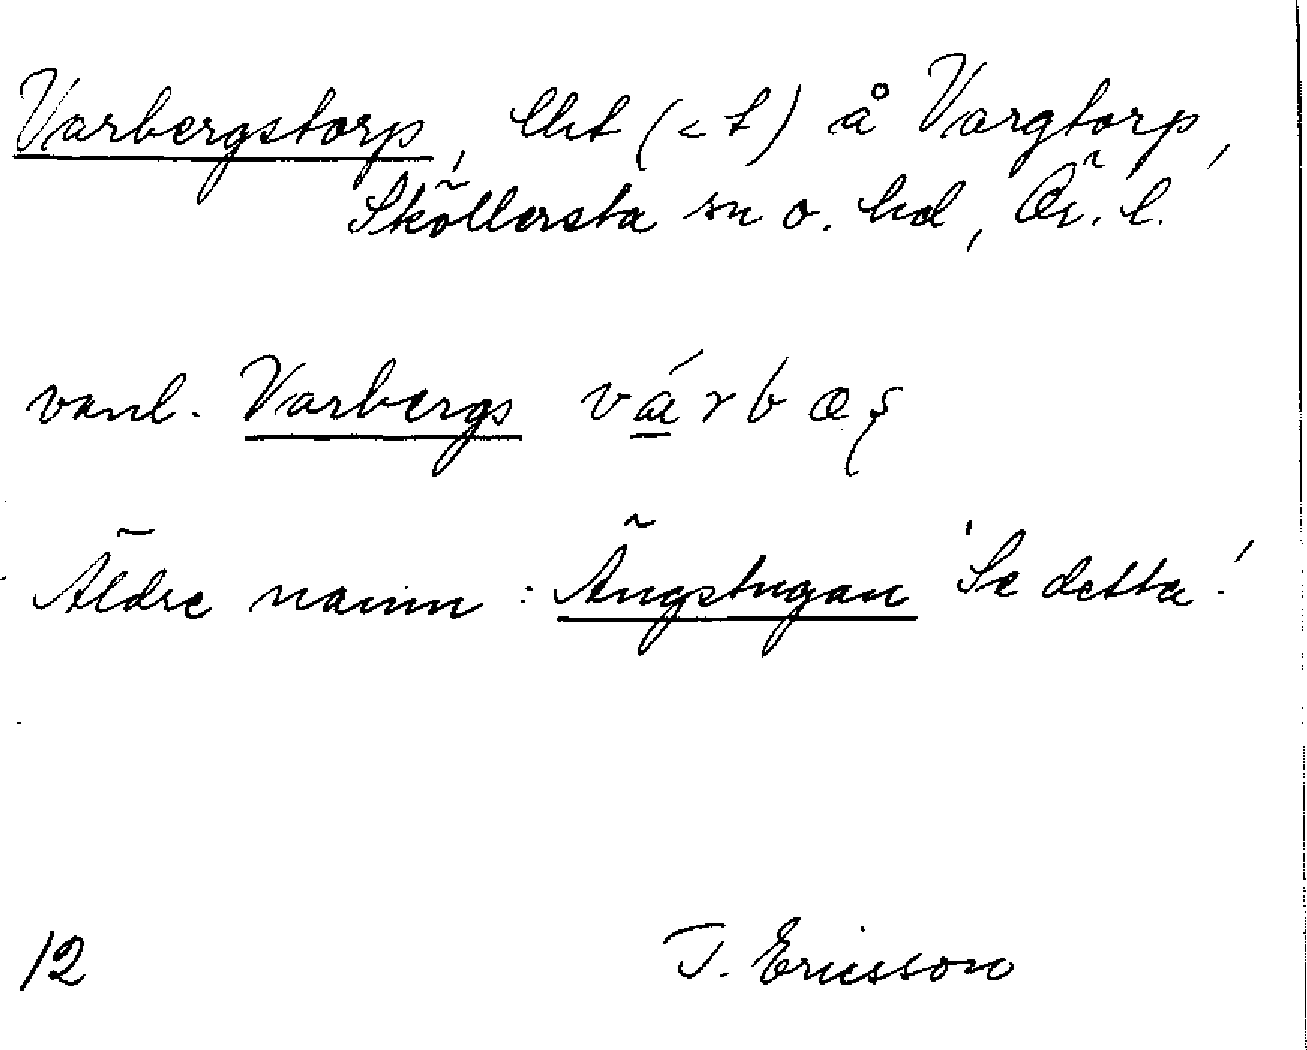 Varbergstorp, lht (< t) å Vargtorp,
Sköllersta sn o. hd, Ör. l.
vanl. Varbergs
Äldre namn: Ängstugan 'Se detta!'
12 T. Ericsson